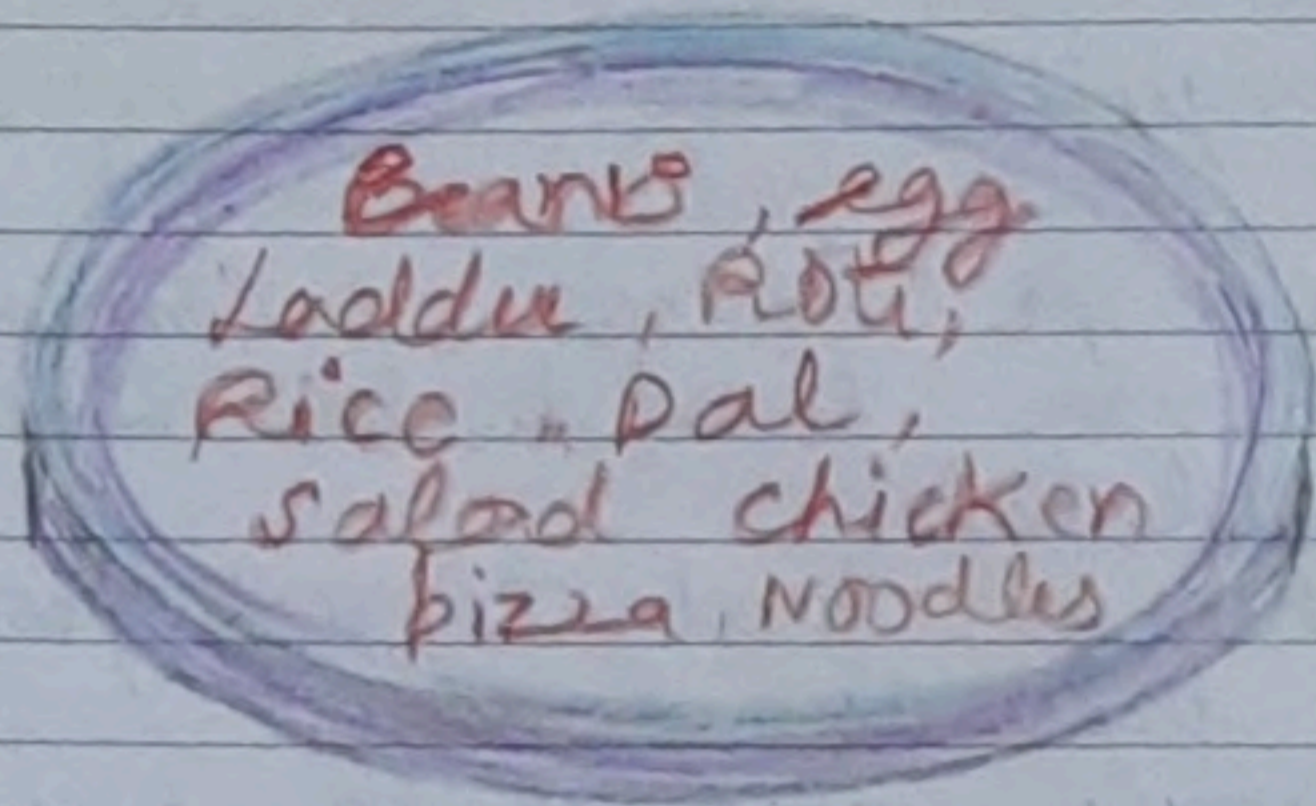 Beans, egg
Laddu, Roti,
Rice, Dal,
Salad chicken
pizza, Noodles